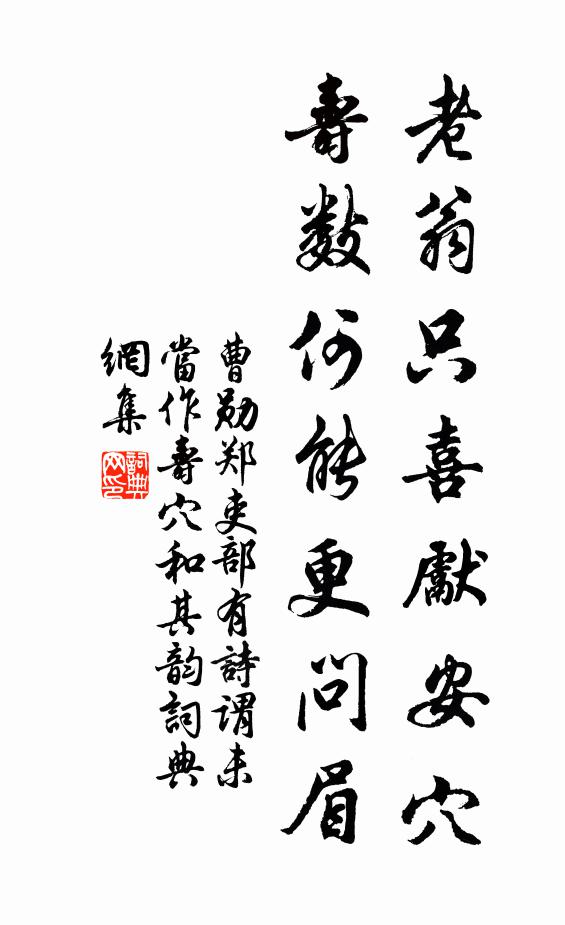 老翁只喜獻安穴
壽數何能更問眉
曹勛郑吏部有詩謂未
當作壽穴和其韵詞典
網集
詞典網印